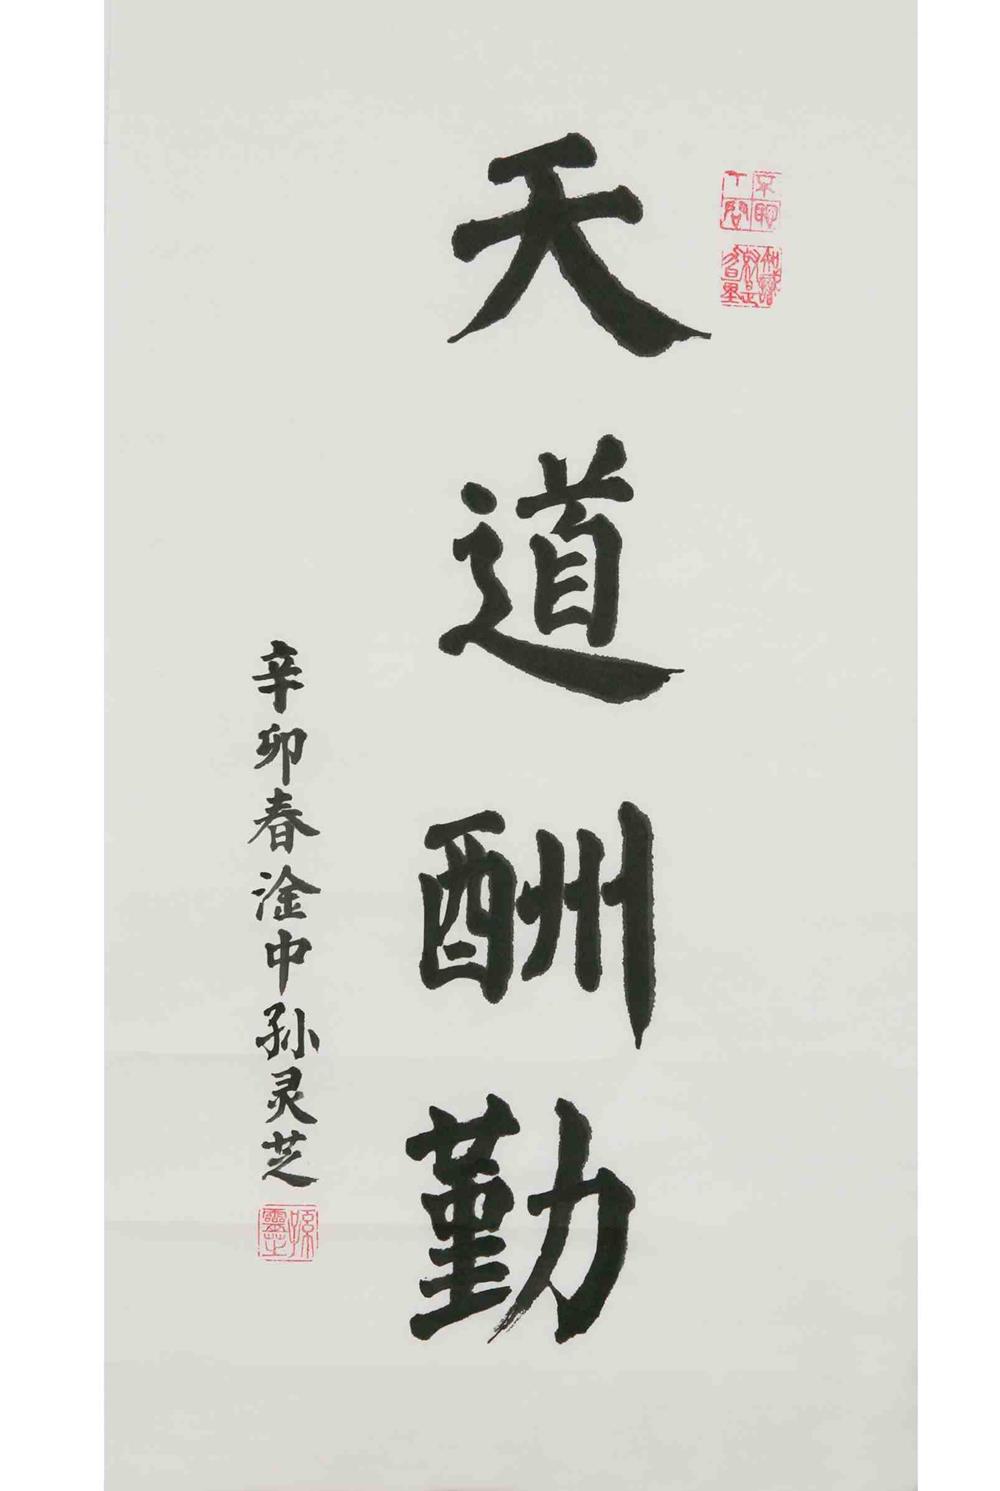 天道酬勤
辛卯春淦中孙灵芝